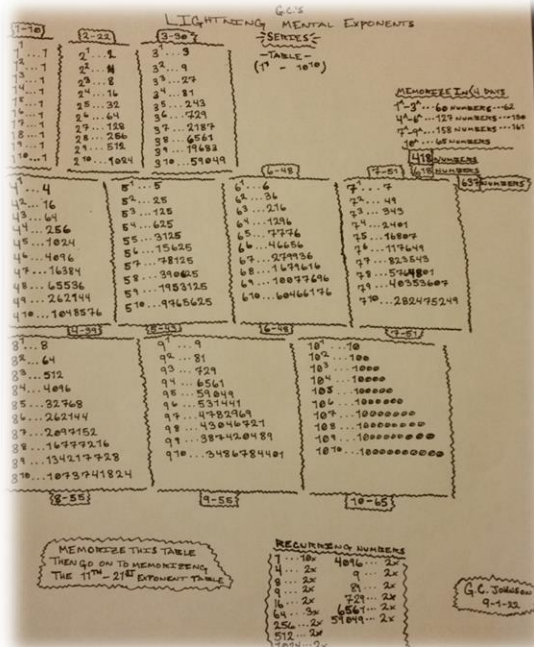 G.C.'S
LIGHTNING MENTAL EXPONENTS
SERIES
-TABLE-
(1¹ - 10¹⁰)
1-10
1¹...1
1²...1
1³...1
1⁴...1
1⁵...1
1⁶...1
1⁷...1
1⁸...1
1⁹...1
1¹⁰...1
2-22
2¹...2
2²...4
2³...8
2⁴...16
2⁵...32
2⁶...64
2⁷...128
2⁸...256
2⁹...512
2¹⁰...1024
3-30
3¹...3
3²...9
3³...27
3⁴...81
3⁵...243
3⁶...729
3⁷...2187
3⁸...6561
3⁹...19683
3¹⁰...59049
MEMORIZE IN (4 DAYS
1^-3^...60 NUMBERS...62
4^-6^...127 NUMBERS...130
7^-9^...158 NUMBERS...161
10^...65 NUMBERS
418 NUMBERS
618 NUMBERS
637 NUMBERS
4¹...4
4²...16
4³...64
4⁴...256
4⁵...1024
4⁶...4096
4⁷...16384
4⁸...65536
4⁹...262144
4¹⁰...1048576
4-39
5¹...5
5²...25
5³...125
5⁴...625
5⁵...3125
5⁶...15625
5⁷...78125
5⁸...390625
5⁹...1953125
5¹⁰...9765625
5-43
6-48
6¹...6
6²...36
6³...216
6⁴...1296
6⁵...7776
6⁶...46656
6⁷...279936
6⁸...1679616
6⁹...10077696
6¹⁰...60466176
6-48
7-51
7¹...7
7²...49
7³...343
7⁴...2401
7⁵...16807
7⁶...117649
7⁷...823543
7⁸...5764801
7⁹...40353607
7¹⁰...282475249
7-51
8¹...8
8²...64
8³...512
8⁴...4096
8⁵...32768
8⁶...262144
8⁷...2097152
8⁸...16777216
8⁹...134217728
8¹⁰...1073741824
8-55
9¹...9
9²...81
9³...729
9⁴...6561
9⁵...59049
9⁶...531441
9⁷...4782969
9⁸...43046721
9⁹...387420489
9¹⁰...3486784401
9-55
10¹...10
10²...100
10³...1000
10⁴...10000
10⁵...100000
10⁶...1000000
10⁷...10000000
10⁸...100000000
10⁹...1000000000
10¹⁰...10000000000
10-65
MEMORIZE THIS TABLE
THEN GO ON TO MEMORIZENG
THE 11TH - 21ST EXPONENT TABLE
RECURRING NUMBERS
1...10x
4...2x
8...2x
9...2x
16...2x
64...3x
256...2x
512...2x
1024...2x
4096...2x
9...2x
81...2x
729...2x
6561...2x
59049...2x
G.C. JOHNSON
9-1-22